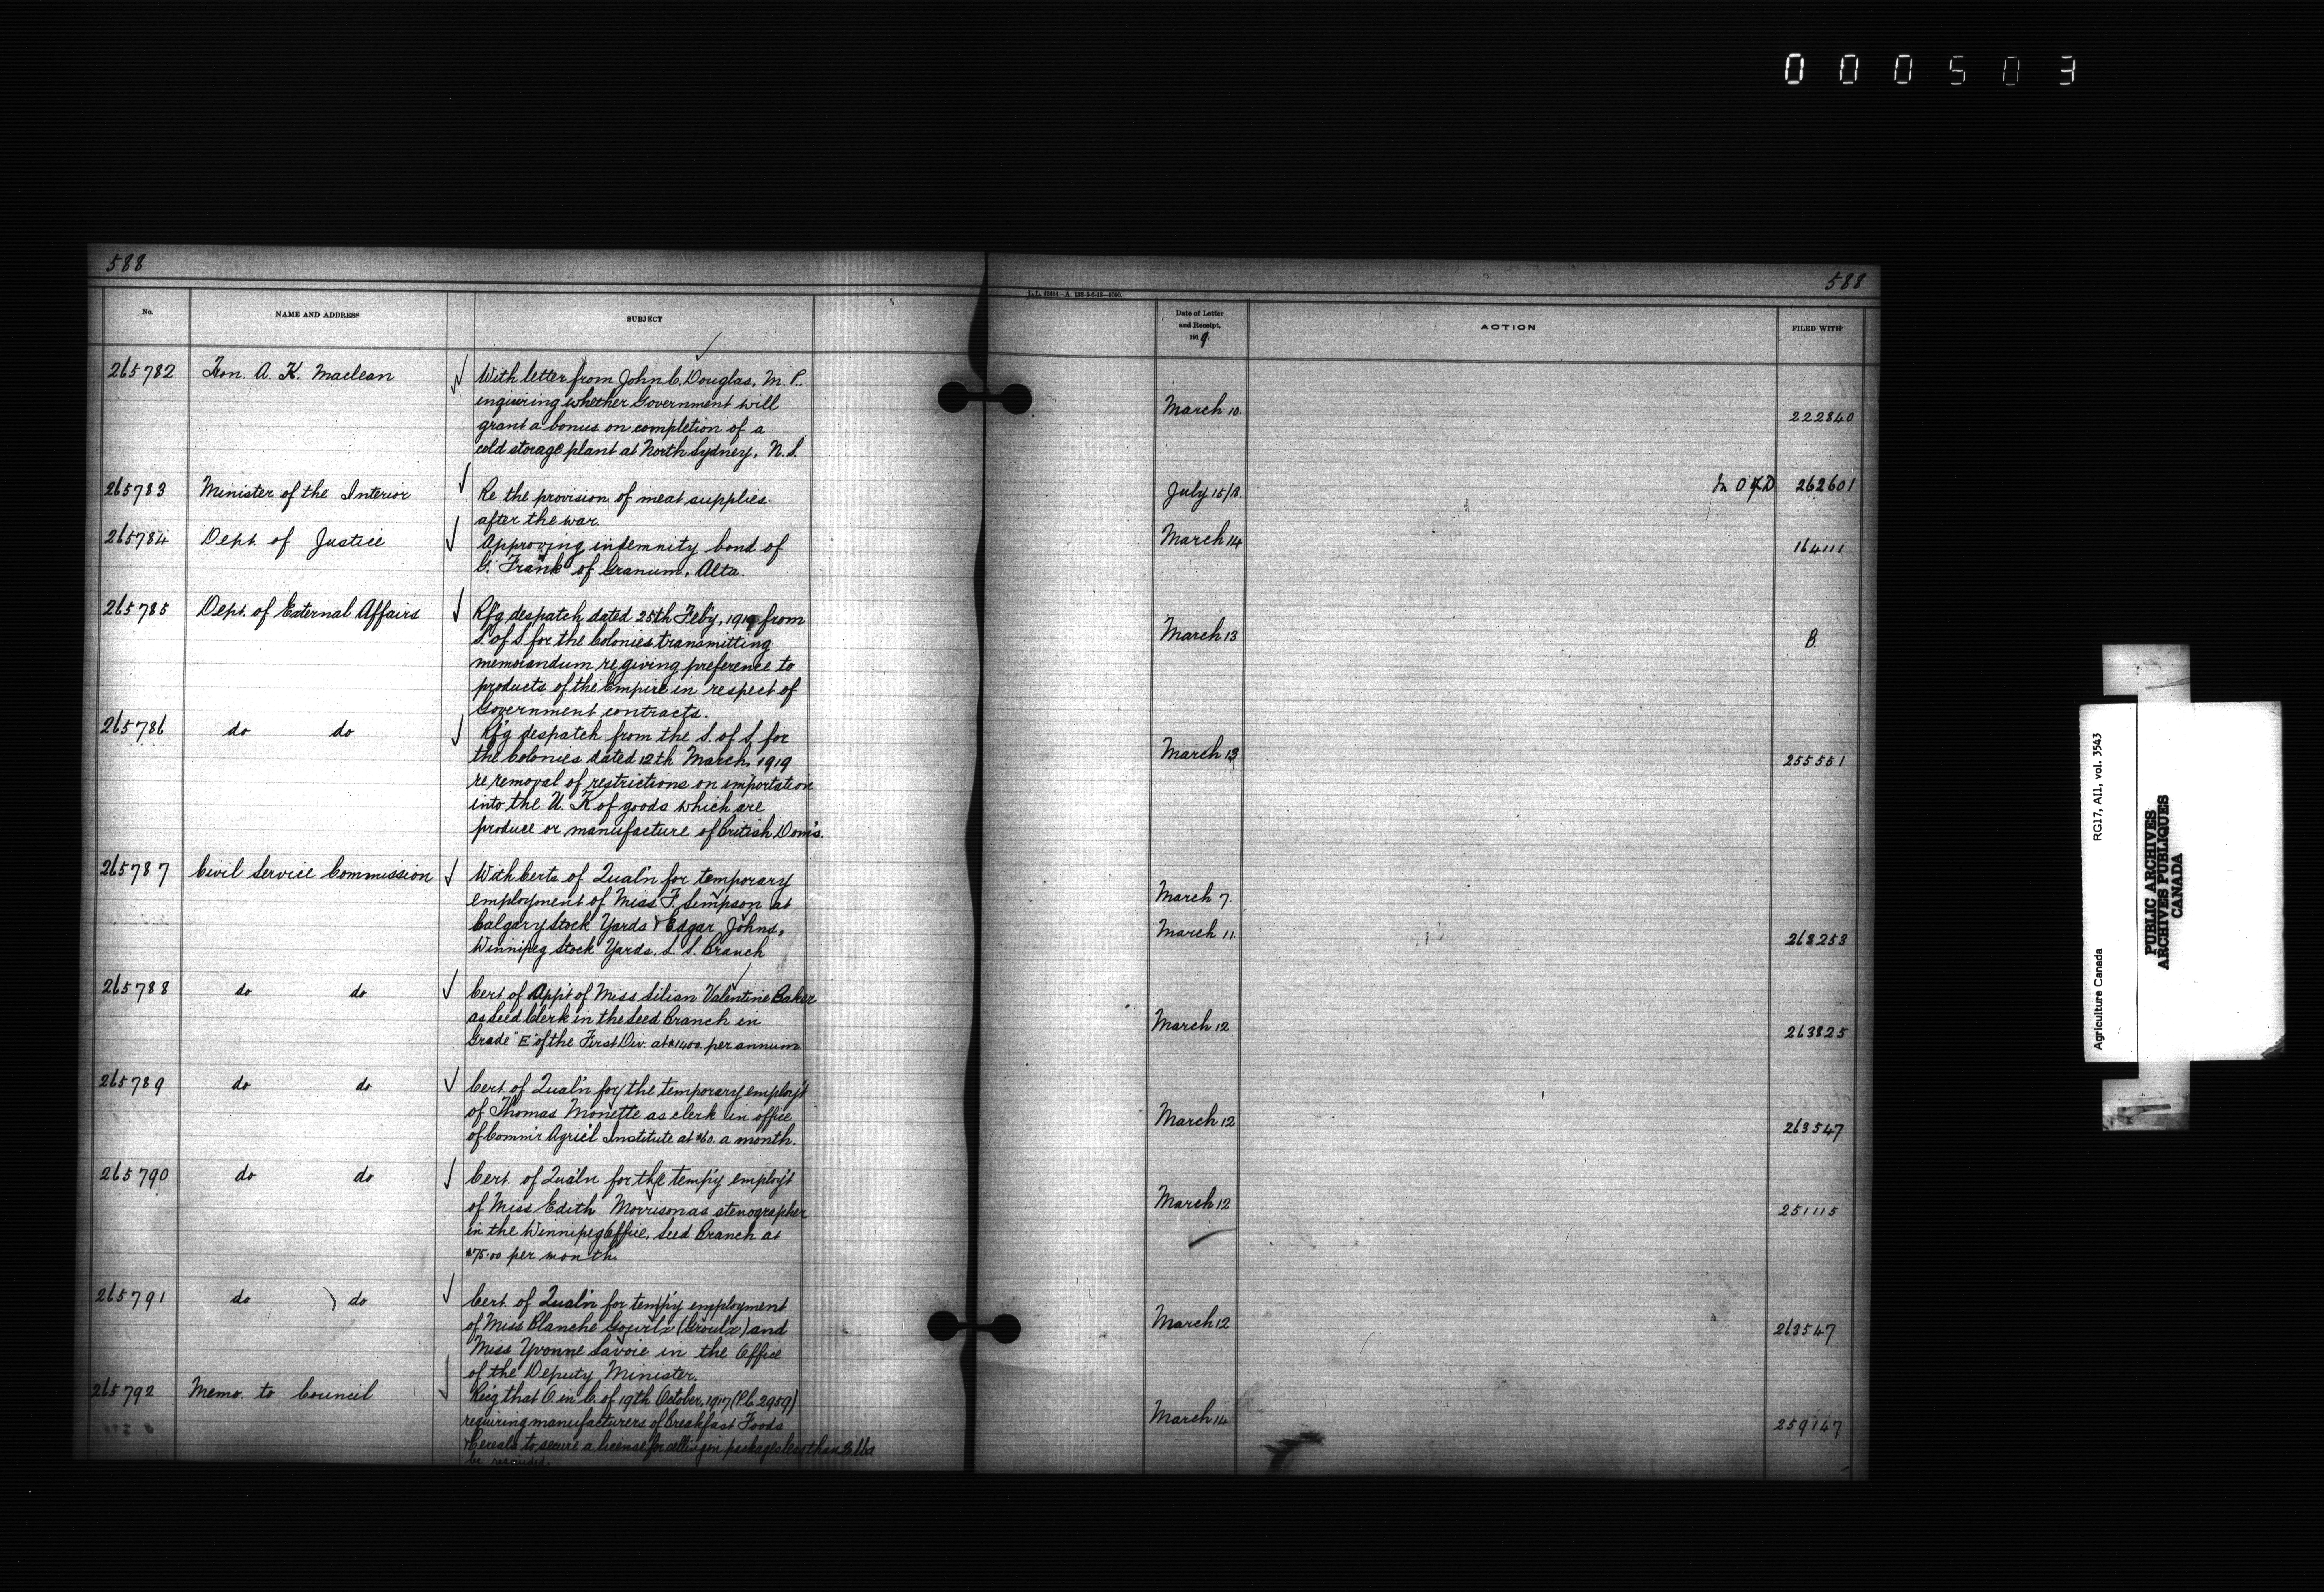 000503
588
588
L.L. 62414—A. 138-5-6-18—1000.
No.
NAME AND ADDRESS
SUBJECT
Date of Letter
and Receipt,
1919.
ACTION
FILED WITH
265782 Hon. A. K. Maclean
With letter from John C. Douglas, M. P.
inquiring whether Government will
grant a bonus on completion of a
cold storage plant at North Sydney, N. S.
March 10. 222840
265783 Minister of the Interior
Re the provision of meat supplies
after the war.
July 15/18. 262601
265784 Dept. of Justice
Approving indemnity bond of
G. Frank of Granum, Alta.
March 14 164111
265785 Dept. of External Affairs
Rf'g despatch dated 25th Feb'y, 1919 from
S. of S. for the Colonies transmitting
memorandum re giving preference to
products of the Empire in respect of
Government contracts.
March 13 B.
265786 do do
Rf'g despatch from the S. of S. for
the Colonies dated 12th March, 1919
re removal of restrictions on importation
into the U. K of goods which are
produce or manufacture of British Dom's.
March 13 255551
265787 Civil Service Commission
With Certs of Qual'n for temporary
employment of Miss F. Simpson at
Calgary Stock Yards & Edgar Johns,
Winnipeg Stock Yards. L. S. Branch
March 7.
March 11 263253
265788 do do
Cert of App't of Miss Lilian Valentine Baker
as Seed Clerk in the Seed Branch in
Grade "E" of the First Div. at $1400. per annum
March 12 263825
265789 do do
Cert. of Qual'n for the temporary employ't
of Thomas Monette as clerk in office
of Comm'r Agric'l Institute at $60. a month.
March 12 263547
265790 do do
Cert. of Qual'n for the temp'y employ't
of Miss Edith Morrison as stenographer
in the Winnipeg Office, Seed Branch at
$75.00 per month.
March 12 251115
265791 do do
Cert. of Qual'n for temp'y employment
of Miss Blanche Gourlx (Groulx) and
Miss Yvonne Savoie in the Office
of the Deputy Minister.
March 12 263547
265792 Memo. to Council
Rec'g that O. in C. of 19th October, 1917 (P.C. 2959)
requiring manufacturers of Breakfast Foods
& Cereals to secure a license for selling in packages less than 20 lbs
be rescinded.
March 14 259147
Agriculture Canada RG17, AI1, vol. 3543
PUBLIC ARCHIVES
ARCHIVES PUBLIQUES
CANADA